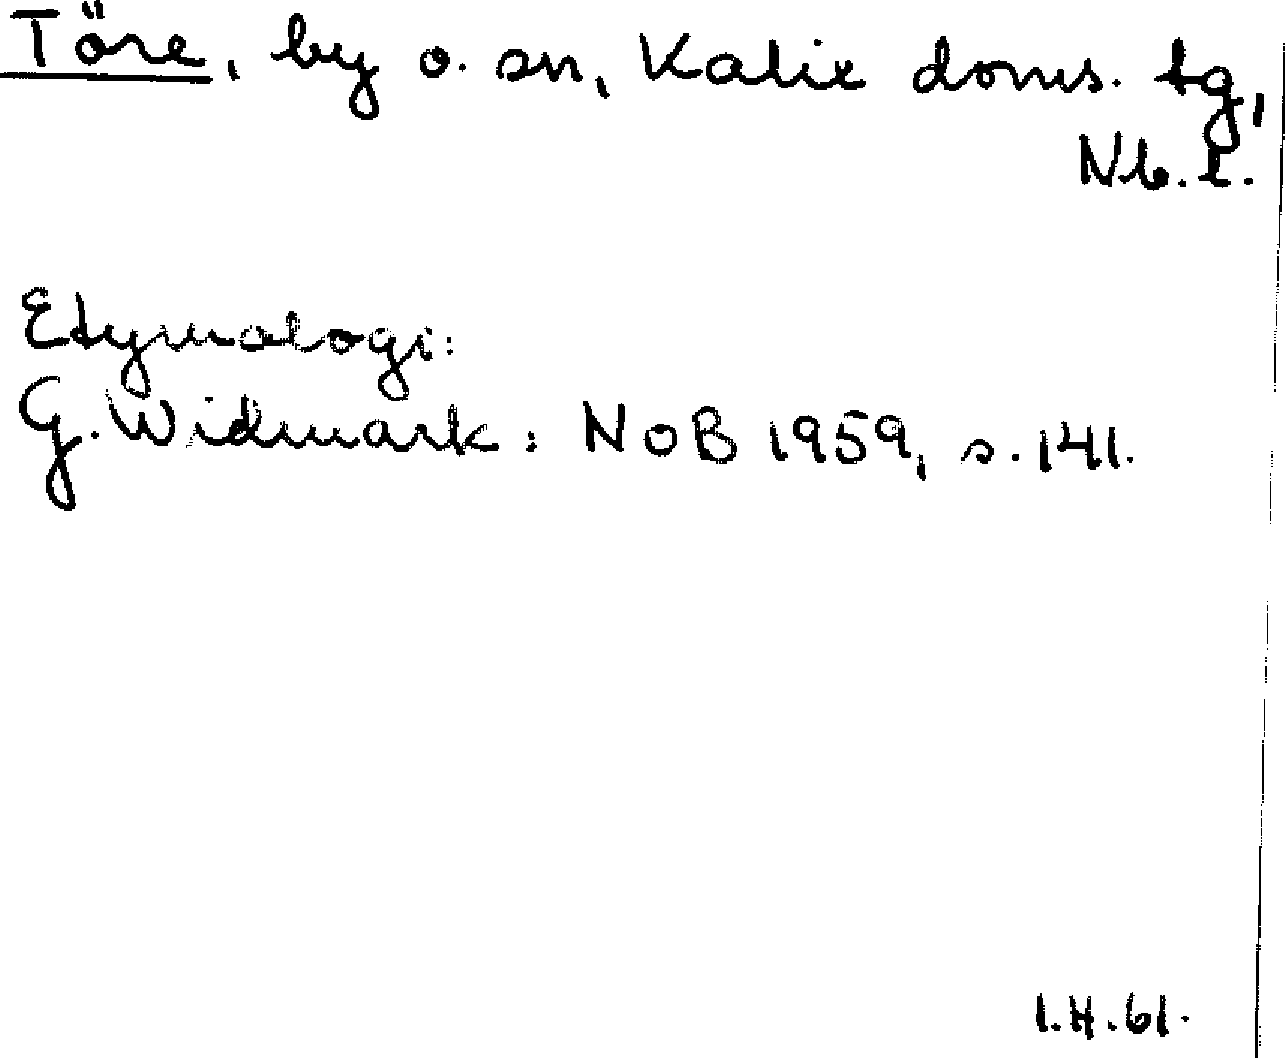 Töre, by o. sn, Kalix doms. tg,
Nb. l.
Etymologi:
G. Widmark: NoB 1959, s. 141.
I.H.61.